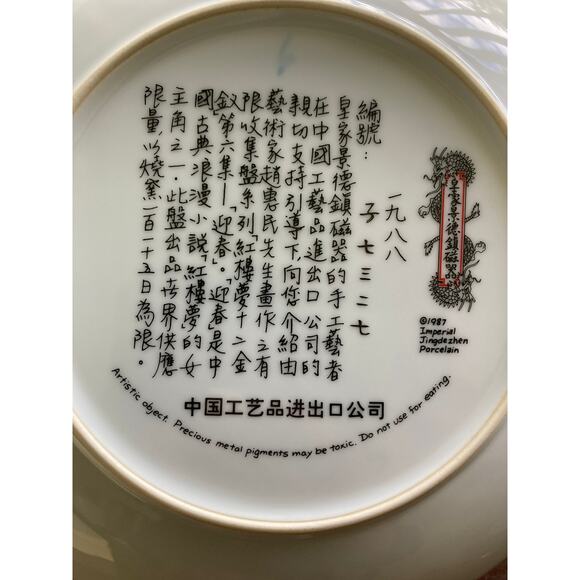 編號：
一九八八
子七三二七
皇家景德鎮磁器的手工藝者
在中國工藝品進出口公司的
親切支持引導下，向您介紹由
藝術家趙惠民先生畫作之有
限收集盤系列「紅樓夢十二金
釵」第六集—「迎春」。「迎春」是中
國古典浪漫小說「紅樓夢」的女
主角之一．此盤出品世界供應
限量，以燒窯一百一十五日為限。
皇家景德鎮磁器
©1987
Imperial
Jingdezhen
Porcelain
中国工艺品进出口公司
Artistic object. Precious metal pigments may be toxic. Do not use for eating.